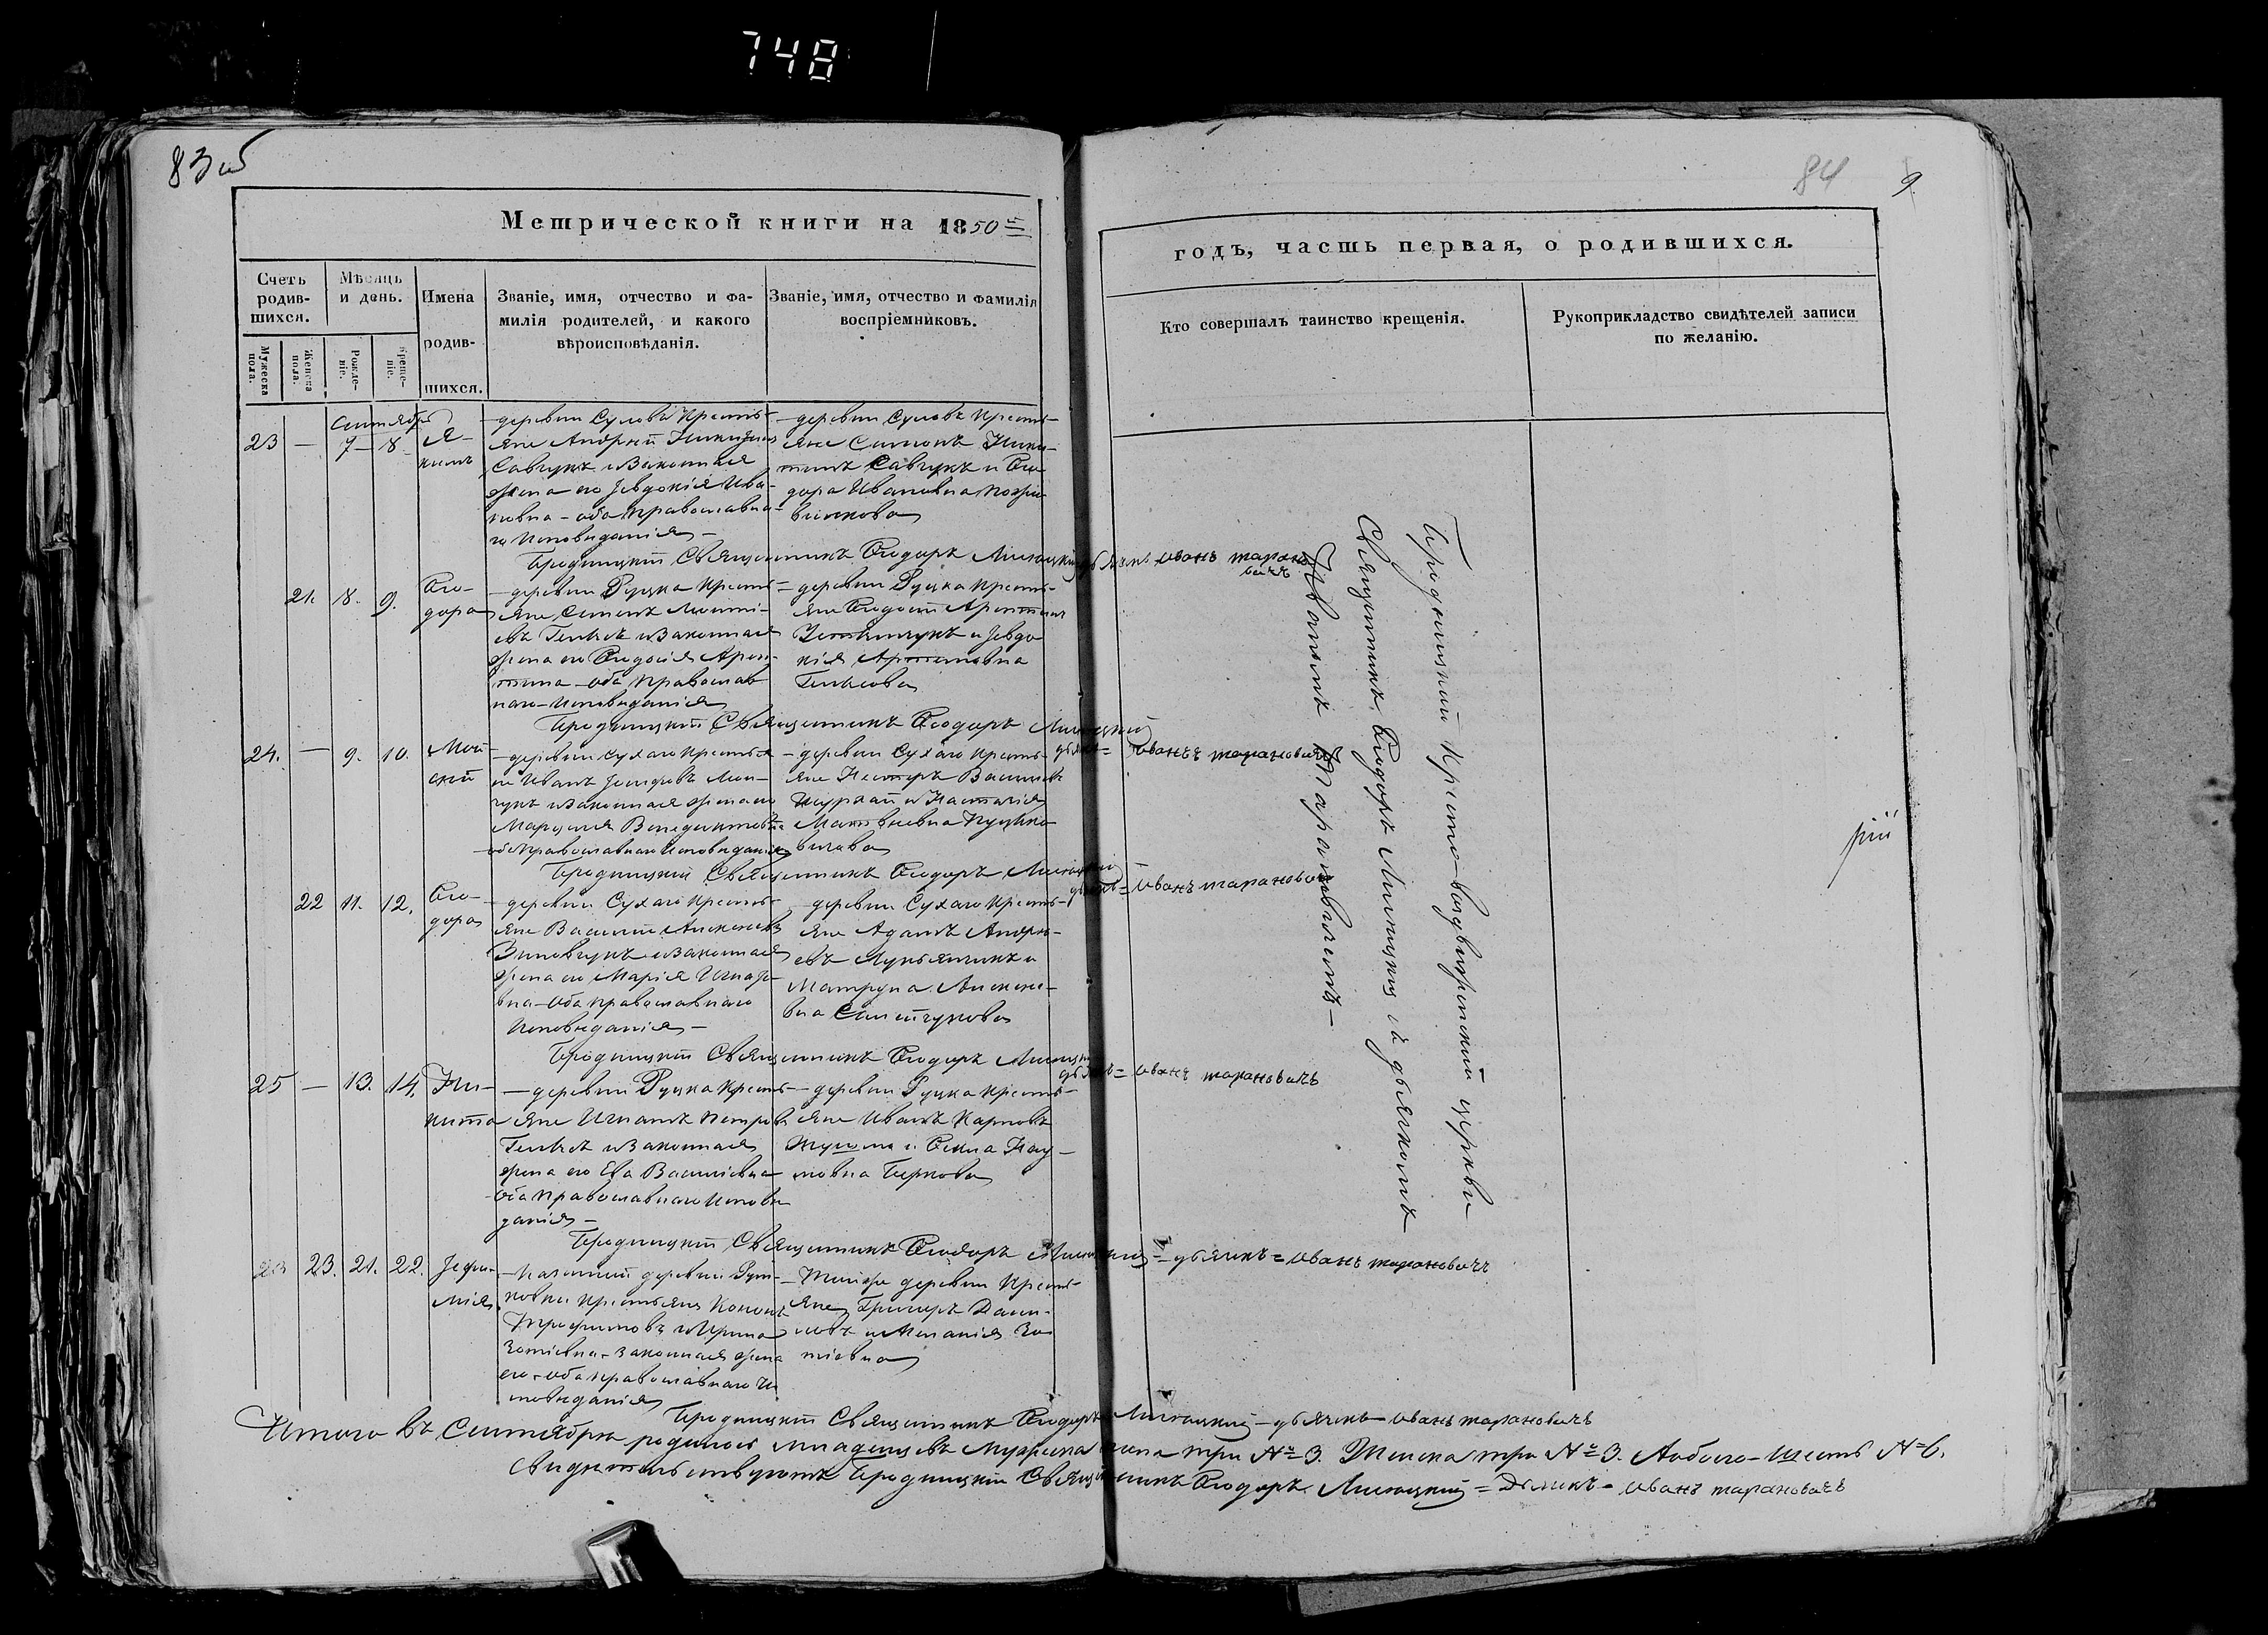 748
83 об
84
9
Метрической книги на 1850й
годъ, часть первая, о родившихся.
Счетъ родив-шихся.
Мѣсяцъ и день.
Имена родив-шихся.
Званіе, имя, отчество и фа-
милія родителей, и какого
вѣроисповѣданія.
Званіе, имя, отчество и фамилія
воспріемниковъ.
Кто совершалъ таинство крещенія.
Рукоприкладство свидѣтелей записи
по желанію.
Мужеска пола.
Женска пола.
Рожде-ніе.
Креще-ніе.
Сентябрь
23 — 7 — 8
Я-
кимъ
деревни Сулова Кресть-
яне Андрей Никитинъ
Савчукъ и Законная
жена его Іевдокія Ива-
новна – оба Православна-
го Исповѣданія –
деревни Сулова Кресть-
яне Симонъ Ники-
тинъ Савчукъ и Ѳео-
дора Ивановна
Бродницкій Священникъ Ѳеодоръ Лисицкій дьячекъ Иванъ Тарано
вичъ
21. 8. 9.
Ѳео-
дора
деревни Рудка Кресть-
яне Семенъ
и Законная
жена его Ѳеодосія
оба Православ-
наго Исповѣданія
деревни Рудка Кресть-
яне Ѳеодосій
и Іевдо-
кія Артемовна
Бродницкій Священникъ Ѳеодоръ Лисицкій
дьячекъ = Иванъ Тарановичъ
24. — 9. 10.
Мой-
сей
деревни Сухаго Крестья-
не Иванъ
и Законная жена его
Марциля Венедиктовна
оба Православнаго Исповѣданія
деревни Сухаго Кресть-
яне Несторъ Василіевъ
и Настасія
Матвѣевна
Бродницкій Священникъ Ѳеодоръ Лисицкій
дьячекъ = Иванъ Тарановичъ
22 11. 12.
Ѳео-
дора
деревни Сухаго Кресть-
яне Василій Алексѣевъ
Зиновчукъ и Законная
жена его Марія
вна – Оба Православнаго
Исповѣданія –
деревни Сухаго Кресть-
яне Адамъ Андре-
евъ Лукьянчикъ и
Матруна Алексѣе-
вна
Бродницкій Священникъ Ѳеодоръ Лисицкій
дьячекъ = Иванъ Тарановичъ
25 — 13. 14.
Ни-
кита
деревни Рудка Кресть-
яне Игнатъ Петровъ
и Законная
жена его Ева Василіевна
Оба Православнаго Исповѣ-
данія –
деревни Рудка Кресть-
яне Иванъ Карповъ
и Ѳекла Нау-
мовна
Бродницкій Священникъ Ѳеодоръ Лисицкій = дьячекъ = Иванъ Тарановичъ
23. 21. 22.
Іефи-
мія
Казенной деревни
Крестьяне Кононъ
Трофимовъ и Ирина
Зотіевна – Законная жена
его – оба Православнаго Ис-
повѣданія
Той же деревни Кресть-
яне Григоръ Дани-
ловъ и Меланія Зо-
тіевна
Бродницкій Священникъ Ѳеодоръ Лисицкій – дьячекъ – Иванъ Тарановичъ
Бродницкой Кресто-воздвиженской церкви
Священникъ Ѳеодоръ Лисицкій съ дьячкомъ
Иваномъ Тарановичемъ –
Итого въ Сентябрѣ родилось младенцевъ Мужеска пола три №3. Женска три №3. А обоего – шесть №6.
Свидѣтельствуютъ Бродницкій Священникъ Ѳеодоръ Лисицкій = Дьячекъ = Иванъ Тарановичъ